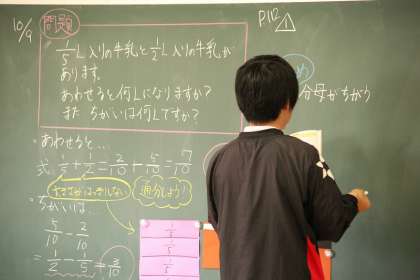 10/9
問題
1/5L入りの牛乳と1/2L入りの牛乳が
あります。
あわせると何Lになりますか？
また ちがいは何Lですか？
P112
1
め
分母がちがう
・あわせると…
式 1/5+1/2=2/10+5/10=7/10
大きさがはっきりしない
通分しよう！
・ちがいは…
5/10-2/10
=1/2-1/5=3/10
1/5
1/5
1/5